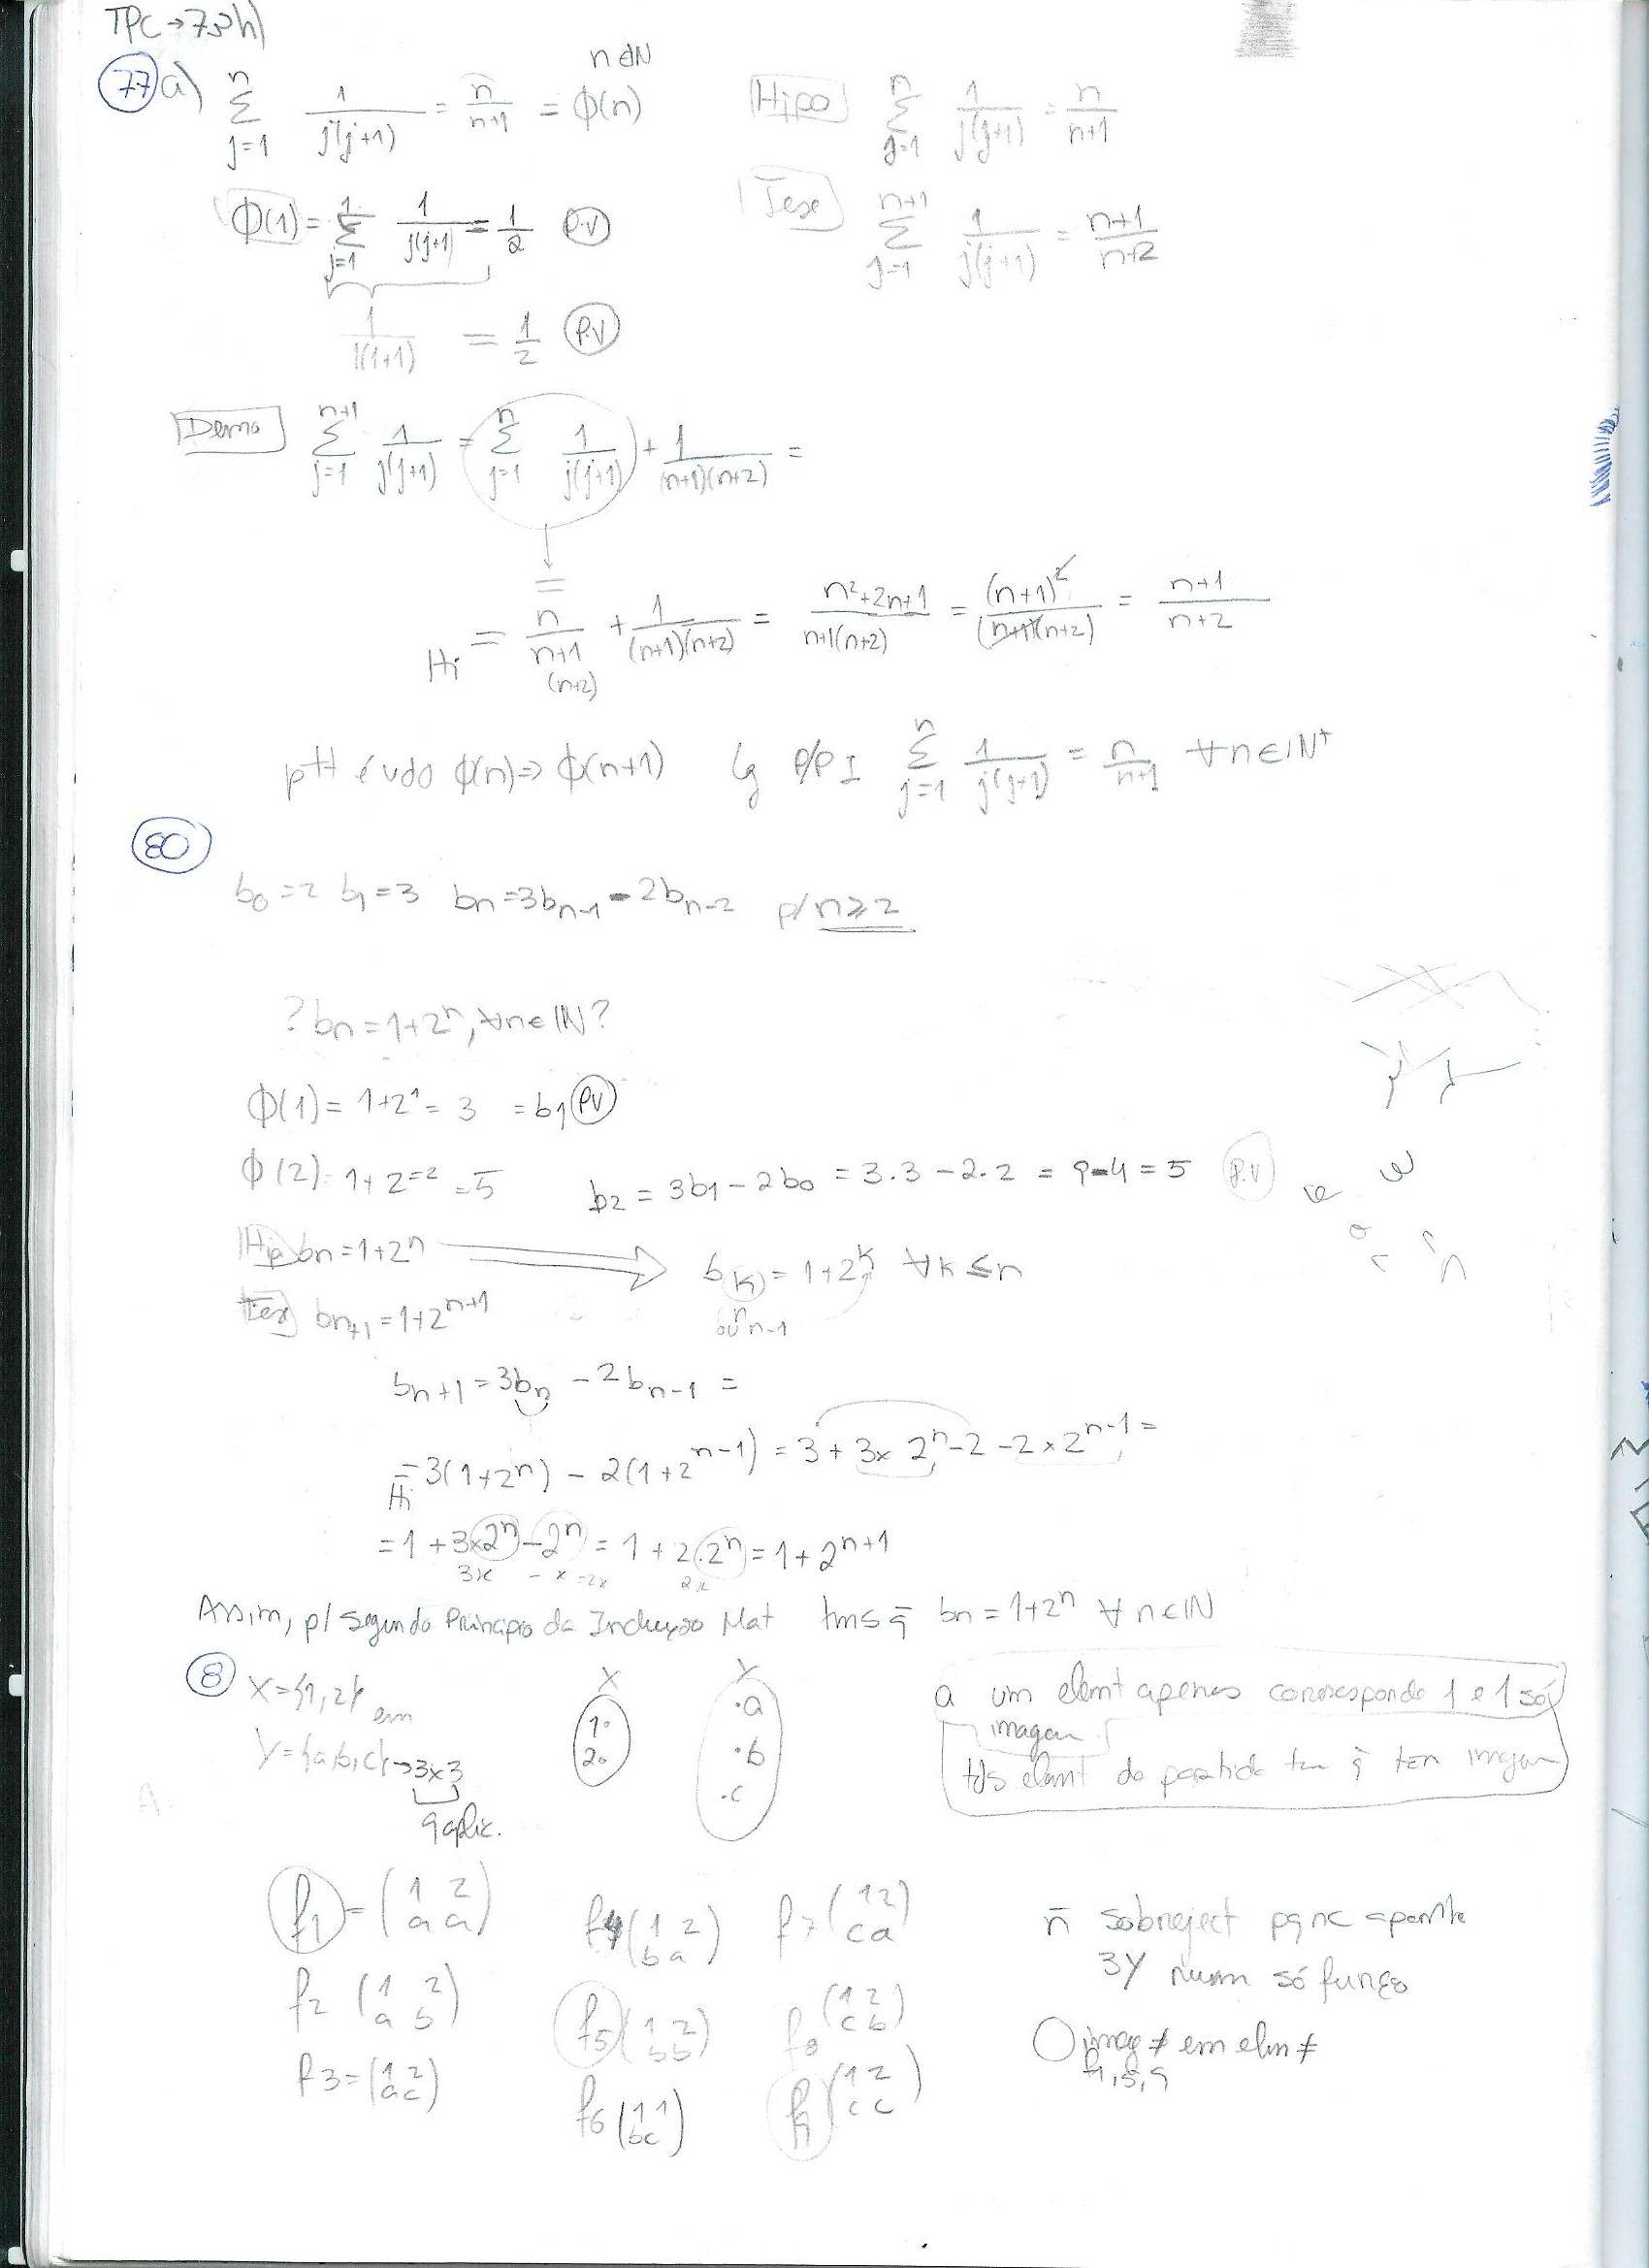 TPC → 73h)
77 a) n∑j=1 1/j(j+1) = n/n+1 = ϕ(n) n∈IN
Hipo n∑j=1 1/j(j+1) = n/n+1
ϕ(1) = 1∑j=1 1/j(j+1) = 1/2 P.V
Tese n+1∑j=1 1/j(j+1) = n+1/n+2
1/1(1+1) = 1/2 P.V
Demo n+1∑j=1 1/j(j+1) = n∑j=1 1/j(j+1) + 1/(n+1)(n+2) =
=
Hi = n/n+1 + 1/(n+1)(n+2) = n²+2n+1/n+1(n+2) = (n+1)²/(n+1)(n+2) = n+1/n+2
(n+2)
ptt é vdo ϕ(n) ⇒ ϕ(n+1) lg P/P I n∑j=1 1/j(j+1) = n/n+1 ∀n∈IN⁺
80
b₀=2 b₁=3 bn=3bn-1 - 2bn-2 p/ n≥2
? bn = 1+2ⁿ, ∀n∈IN ?
ϕ(1) = 1+2¹ = 3 = b₁ PV
ϕ(2) = 1+2² = 5 b₂ = 3b₁ - 2b₀ = 3.3 - 2.2 = 9-4 = 5 P.V
Hip bn = 1+2ⁿ ⟹ bk = 1+2ᵏ ∀k≤n
n
ou n-1
Tes bn+1 = 1+2ⁿ⁺¹
bn+1 = 3bn - 2bn-1 =
= 3(1+2ⁿ) - 2(1+2ⁿ⁻¹) = 3 + 3×2ⁿ - 2 - 2×2ⁿ⁻¹ =
Hi
= 1 + 3×2ⁿ - 2ⁿ = 1 + 2.2ⁿ = 1 + 2ⁿ⁺¹
3x - x = 2x 2x
Assim, p/ segundo Principio da Indução Mat tms q̄ bn = 1+2ⁿ ∀n∈IN
8 X={1,2} em
Y={a,b,c} → 3×3
9 aplic.
X Y
1.
2.
.a
.b
.c
a um elemt apenas corresponde 1 e 1 só
imagem
tds elemt de partida tem q̄ ter imagem
f1 = (1 2 / a a) f4 (1 2 / b a) f7 (1 2 / c a)
f2 (1 2 / a b) f5 (1 2 / b b) f8 (1 2 / c b)
f3 = (1 2 / a c) f6 (1 1 / b c) f9 (1 2 / c c)
n̄ sobreject pq nc
3Y num só função
imag ≠ em elm ≠
f1,5,9